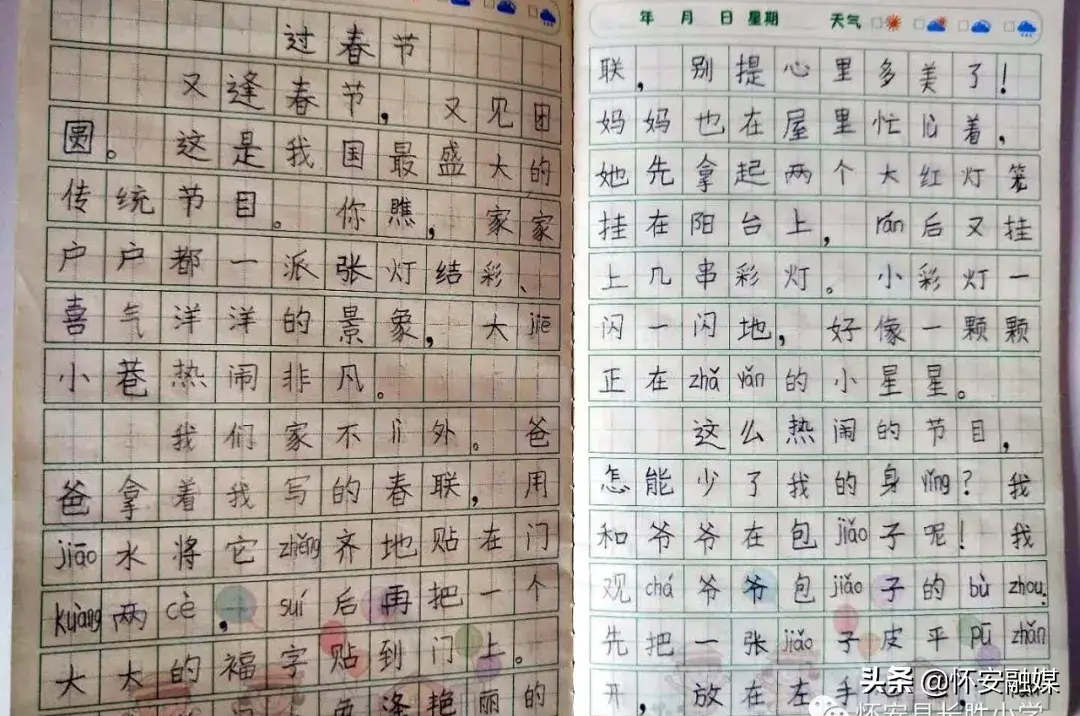 过春节
又逢春节,又见团
圆。这是我国最盛大的
传统节目。你瞧,家家
户户都一派张灯结彩、
喜气洋洋的景象,大jiē
小巷热闹非凡。
我们家不lì外。爸
爸拿着我写的春联,用
jiāo水将它zhěng齐地贴在门
kuàng两cè,suí后再把一个
大大的福字贴到门上。
逢艳丽的
年 月 日 星期 天气
联,别提心里多美了!
妈妈也在屋里忙忙着,
她先拿起两个大红灯笼
挂在阳台上,rán后又挂
上几串彩灯。小彩灯一
闪一闪地,好像一颗颗
正在zhǎ yǎn的小星星。
这么热闹的节目,
怎能少了我的身yǐng?我
和爷爷在包jiǎo子呢!我
观chá爷爷包jiǎo子的bù zhou.
先把一张jiǎo子皮平pū zhǎn
开,放在左手
头条 @怀安融媒
怀安县长胜小学